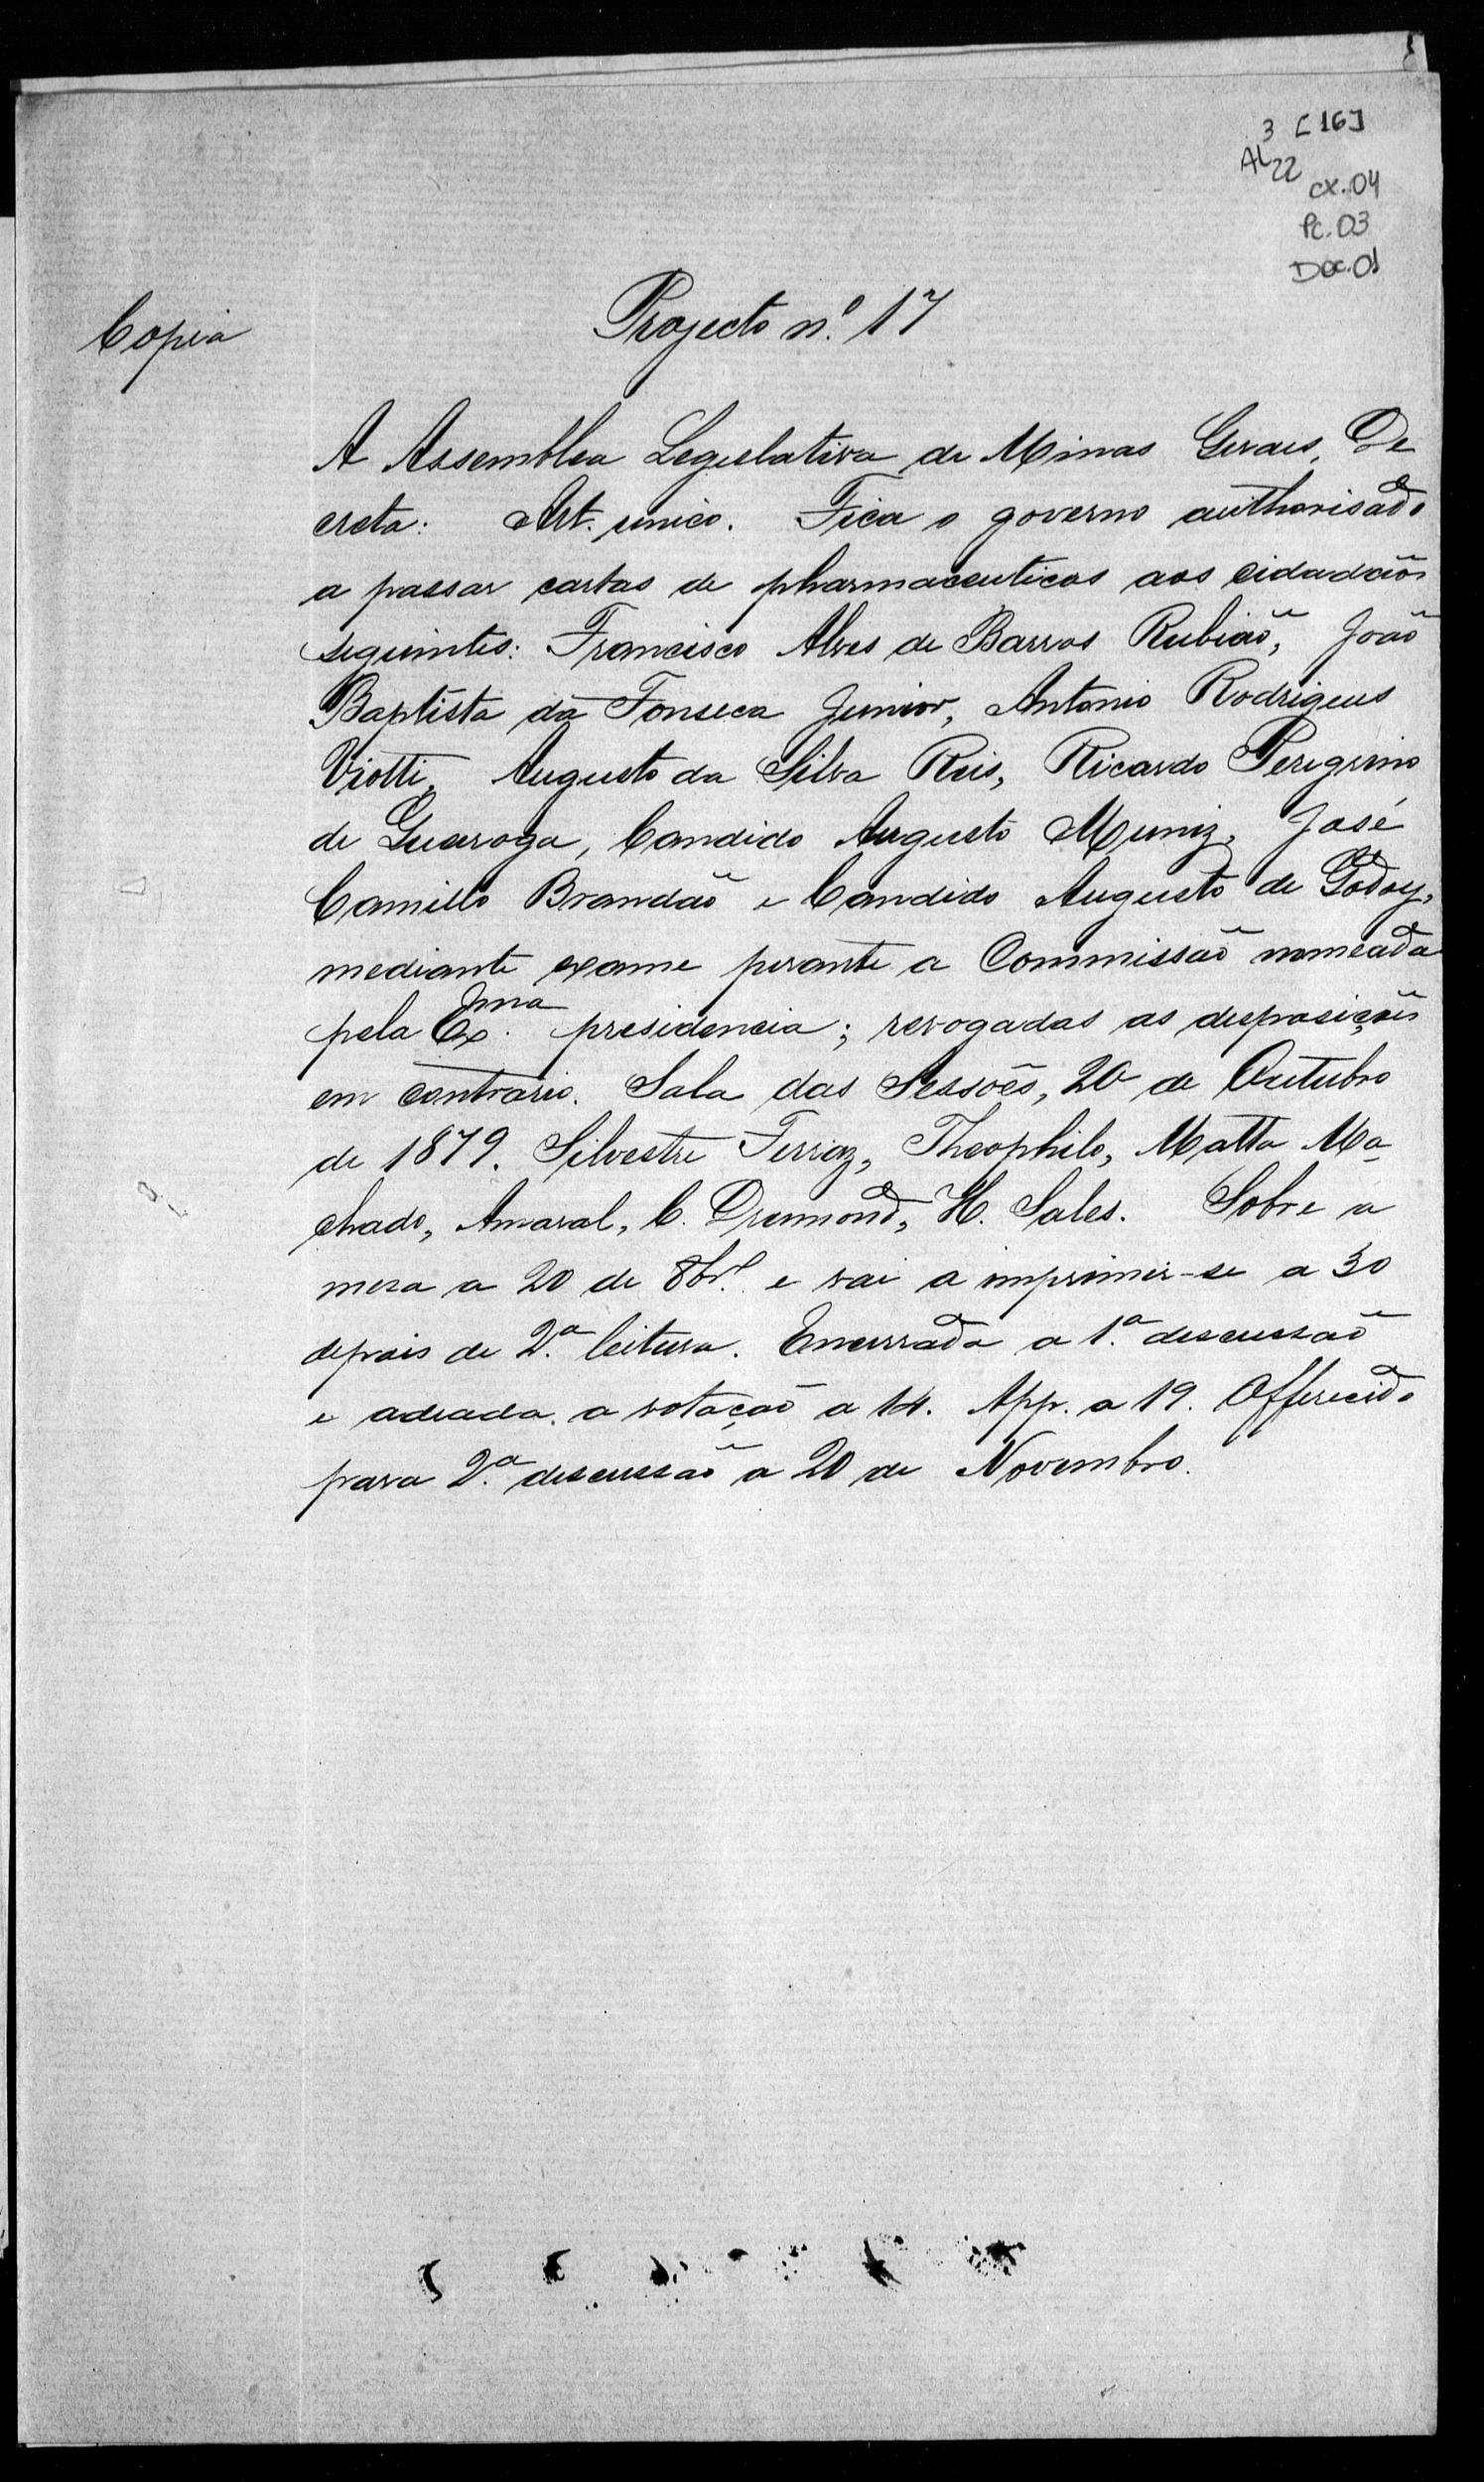 3 [16]
AL 22
cx. 04
Pc. 03
Doc. 01
Copia
Projecto n.º 17
A Assemblea Legislativa de Minas Geraes, De
creta: Art. unico. Fica o governo authorisado
a passar cartas de pharmaceuticos aos cidadãos
seguintes: Francisco Alves de Barros Rubião, João
Baptista da Fonseca Junior, Antonio Rodrigues
Viotti, Augusto da Silva Reis, Ricardo Peregrino
de, Candido Augusto Muniz, José
Camillo Brandão e Candido Augusto de Godoy,
mediante exame perante a Commissão nomeada
pela Ex.ma presidencia; revogadas as disposições
em contrario. Sala das Sessões, 20 de Outubro
de 1879. Silvestre Ferraz, Theophilo, Matta Ma-
chado, Amaral, C. Drumond, H. Sales. Sobre a
mesa a 20 de 8br.º e vai a imprimir-se a 30
depois de 2.ª leitura. Encerrada a 1.ª discussão
e adiada a votação a 14. App. a 19. Offerecido
para 2.ª discussão a 20 de Novembro.